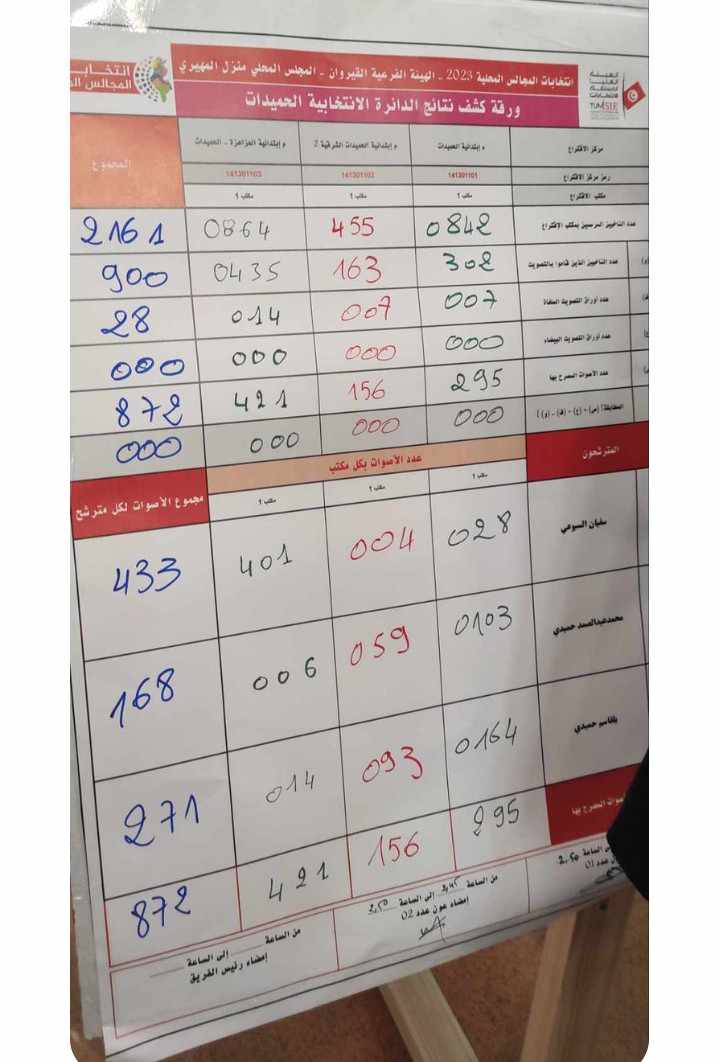 انتخابات المجالس المحلية 2023 ـ الهيئة الفرعية القيروان ـ المجلس المحلي منزل المهيري
ورقة كشف نتائج الدائرة الانتخابية الحميدات
TUNISIE
انتخابـ
المجالس الـ
مركز الاقتراع
م إبتدائية الحميدات
م إبتدائية الحميدات الشرقية 2
م إبتدائية العزاعزة ـ الحميدات
المجموع
رمز مركز الاقتراع 141301101 141301102 141301103
مكتب الاقتراع مكتب 1 مكتب 1 مكتب 1
عدد الناخبين المرسمين بمكتب الاقتراع 0842 455 0864 2161
عدد الناخبين الذين قاموا بالتصويت 302 163 0435 900
عدد أوراق التصويت الملغاة 007 007 014 28
عدد أوراق التصويت البيضاء 000 000 000 000
عدد الأصوات المصرح بها 295 156 421 872
المطابقة 000 000 000 000
المترشحون
عدد الأصوات بكل مكتب
مجموع الأصوات لكل مترشح
مكتب 1 مكتب 1 مكتب 1
سفيان السبوعي 028 004 401 433
محمدعبدالصمد حميدي 0103 059 006 168
بلقاسم حميدي 0164 093 014 271
الأصوات المصرح بها 295 156 421 872
الساعة 2.50
عدد 01
من الساعة 2,45 إلى الساعة 2,50
إمضاء عون عدد 02
من الساعة إلى الساعة
إمضاء رئيس الفريق